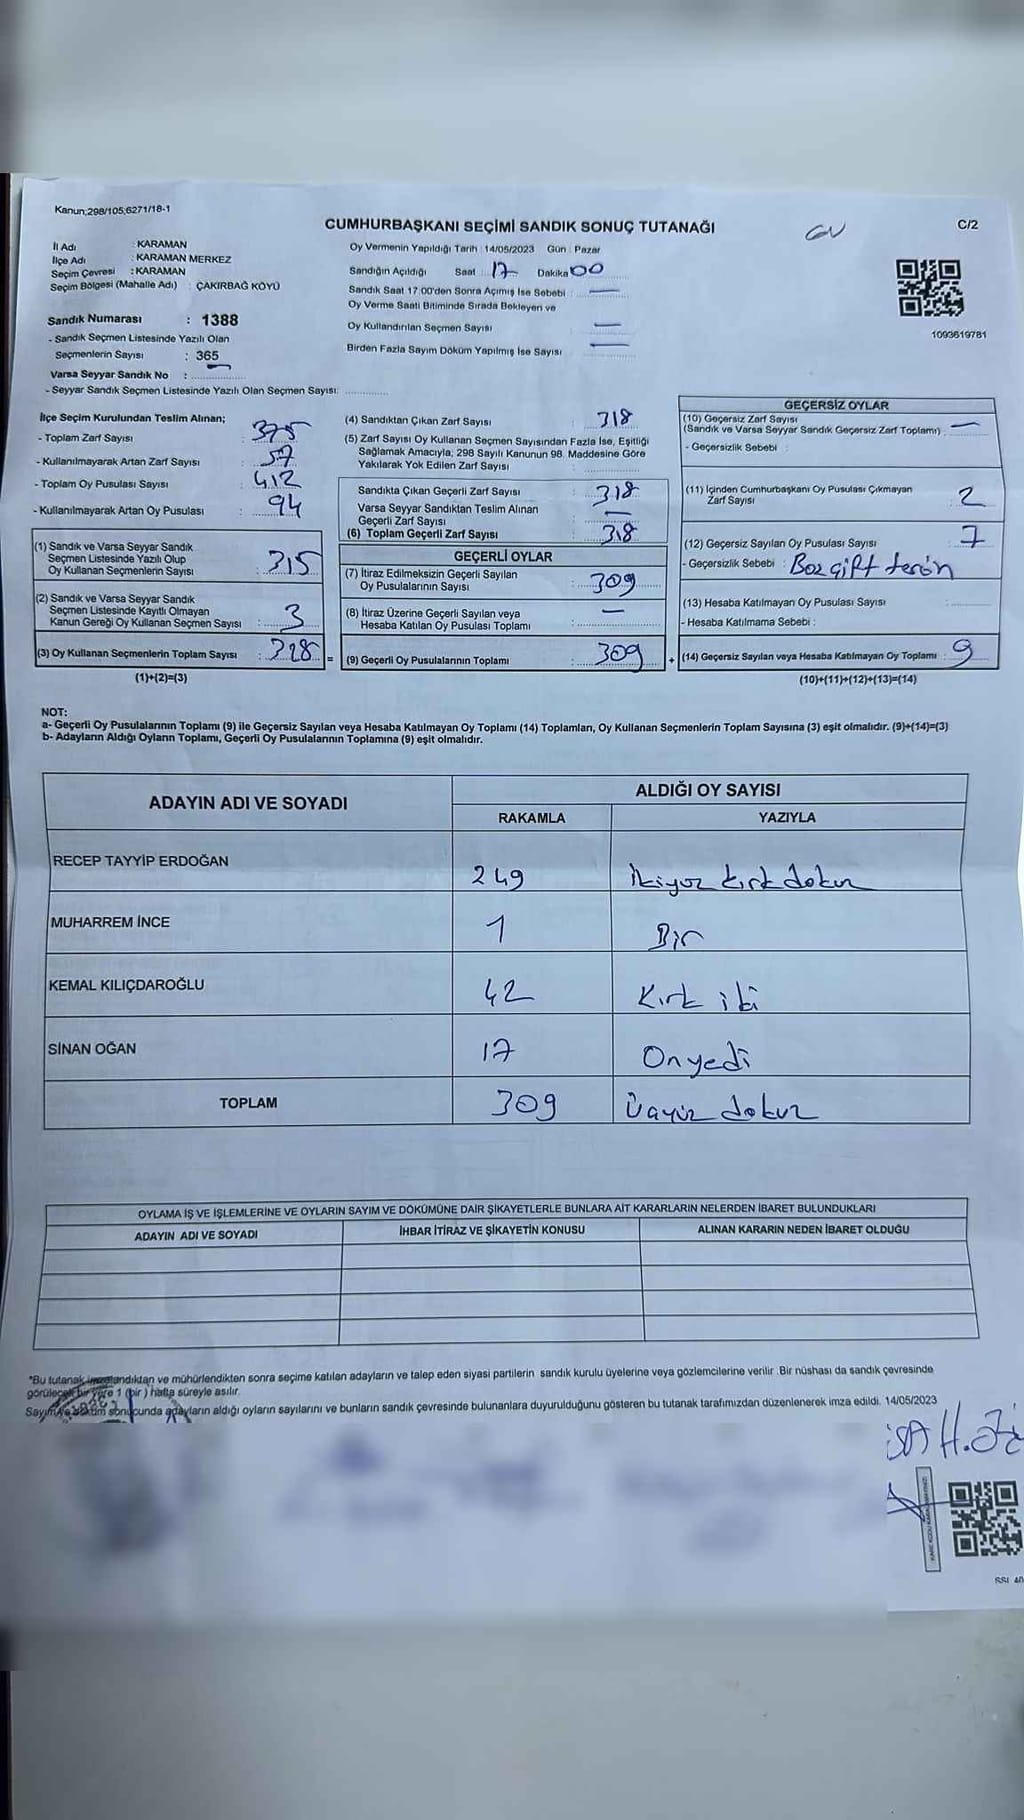 Kanun;298/105;6271/18-1
CUMHURBAŞKANI SEÇİMİ SANDIK SONUÇ TUTANAĞI
C/2
İl Adı : KARAMAN
İlçe Adı : KARAMAN MERKEZ
Seçim Çevresi : KARAMAN
Seçim Bölgesi (Mahalle Adı) : ÇAKIRBAĞ KÖYÜ
Sandık Numarası : 1388
- Sandık Seçmen Listesinde Yazılı Olan
Seçmenlerin Sayısı : 365
Varsa Seyyar Sandık No :
- Seyyar Sandık Seçmen Listesinde Yazılı Olan Seçmen Sayısı:
Oy Vermenin Yapıldığı Tarih : 14/05/2023 Gün : Pazar
Sandığın Açıldığı Saat 17 Dakika 00
Sandık Saat 17:00'den Sonra Açımış İse Sebebi : —
Oy Verme Saati Bitiminde Sırada Bekleyen ve
Oy Kullandırılan Seçmen Sayısı —
Birden Fazla Sayım Döküm Yapılmış İse Sayısı —
1093619781
İlçe Seçim Kurulundan Teslim Alınan;
- Toplam Zarf Sayısı : 375
- Kullanılmayarak Artan Zarf Sayısı : 57
- Toplam Oy Pusulası Sayısı : 412
- Kullanılmayarak Artan Oy Pusulası : 94
(1) Sandık ve Varsa Seyyar Sandık
Seçmen Listesinde Yazılı Olup
Oy Kullanan Seçmenlerin Sayısı : 315
(2) Sandık ve Varsa Seyyar Sandık
Seçmen Listesinde Kayıtlı Olmayan
Kanun Gereği Oy Kullanan Seçmen Sayısı : 3
(3) Oy Kullanan Seçmenlerin Toplam Sayısı : 328 =
(1)+(2)=(3)
(4) Sandıktan Çıkan Zarf Sayısı : 318
(5) Zarf Sayısı Oy Kullanan Seçmen Sayısından Fazla İse, Eşitliği
Sağlamak Amacıyla, 298 Sayılı Kanunun 98. Maddesine Göre
Yakılarak Yok Edilen Zarf Sayısı
Sandıkta Çıkan Geçerli Zarf Sayısı : 318
Varsa Seyyar Sandıktan Teslim Alınan
Geçerli Zarf Sayısı : —
(6) Toplam Geçerli Zarf Sayısı : 318
GEÇERLİ OYLAR
(7) İtiraz Edilmeksizin Geçerli Sayılan
Oy Pusulalarının Sayısı : 309
(8) İtiraz Üzerine Geçerli Sayılan veya
Hesaba Katılan Oy Pusulası Toplamı : —
(9) Geçerli Oy Pusulalarının Toplamı : 309 +
GEÇERSİZ OYLAR
(10) Geçersiz Zarf Sayısı
(Sandık ve Varsa Seyyar Sandık Geçersiz Zarf Toplamı) : —
- Geçersizlik Sebebi :
(11) İçinden Cumhurbaşkanı Oy Pusulası Çıkmayan
Zarf Sayısı : 2
(12) Geçersiz Sayılan Oy Pusulası Sayısı : 7
- Geçersizlik Sebebi :
(13) Hesaba Katılmayan Oy Pusulası Sayısı :
- Hesaba Katılmama Sebebi :
(14) Geçersiz Sayılan veya Hesaba Katılmayan Oy Toplamı : 9
(10)+(11)+(12)+(13)=(14)
NOT:
a- Geçerli Oy Pusulalarının Toplamı (9) ile Geçersiz Sayılan veya Hesaba Katılmayan Oy Toplamı (14) Toplamları, Oy Kullanan Seçmenlerin Toplam Sayısına (3) eşit olmalıdır. (9)+(14)=(3)
b- Adayların Aldığı Oyların Toplamı, Geçerli Oy Pusulalarının Toplamına (9) eşit olmalıdır.
ADAYIN ADI VE SOYADI
ALDIĞI OY SAYISI
RAKAMLA YAZIYLA
RECEP TAYYİP ERDOĞAN 249 İkiyüz kırk dokuz
MUHARREM İNCE 1 Bir
KEMAL KILIÇDAROĞLU 42 Kırk iki
SİNAN OĞAN 17 Onyedi
TOPLAM 309 Üçyüz dokuz
OYLAMA İŞ VE İŞLEMLERİNE VE OYLARIN SAYIM VE DÖKÜMÜNE DAİR ŞİKAYETLERLE BUNLARA AİT KARARLARIN NELERDEN İBARET BULUNDUKLARI
ADAYIN ADI VE SOYADI İHBAR İTİRAZ VE ŞİKAYETİN KONUSU ALINAN KARARIN NEDEN İBARET OLDUĞU
*Bu tutanak imzalandıktan ve mühürlendikten sonra seçime katılan adayların ve talep eden siyasi partilerin sandık kurulu üyelerine veya gözlemcilerine verilir. Bir nüshası da sandık çevresinde
görülecek bir yere 1 (bir) hafta süreyle asılır.
Sayım ve döküm sonucunda adayların aldığı oyların sayılarını ve bunların sandık çevresinde bulunanlara duyurulduğunu gösteren bu tutanak tarafımızdan düzenlenerek imza edildi. 14/05/2023